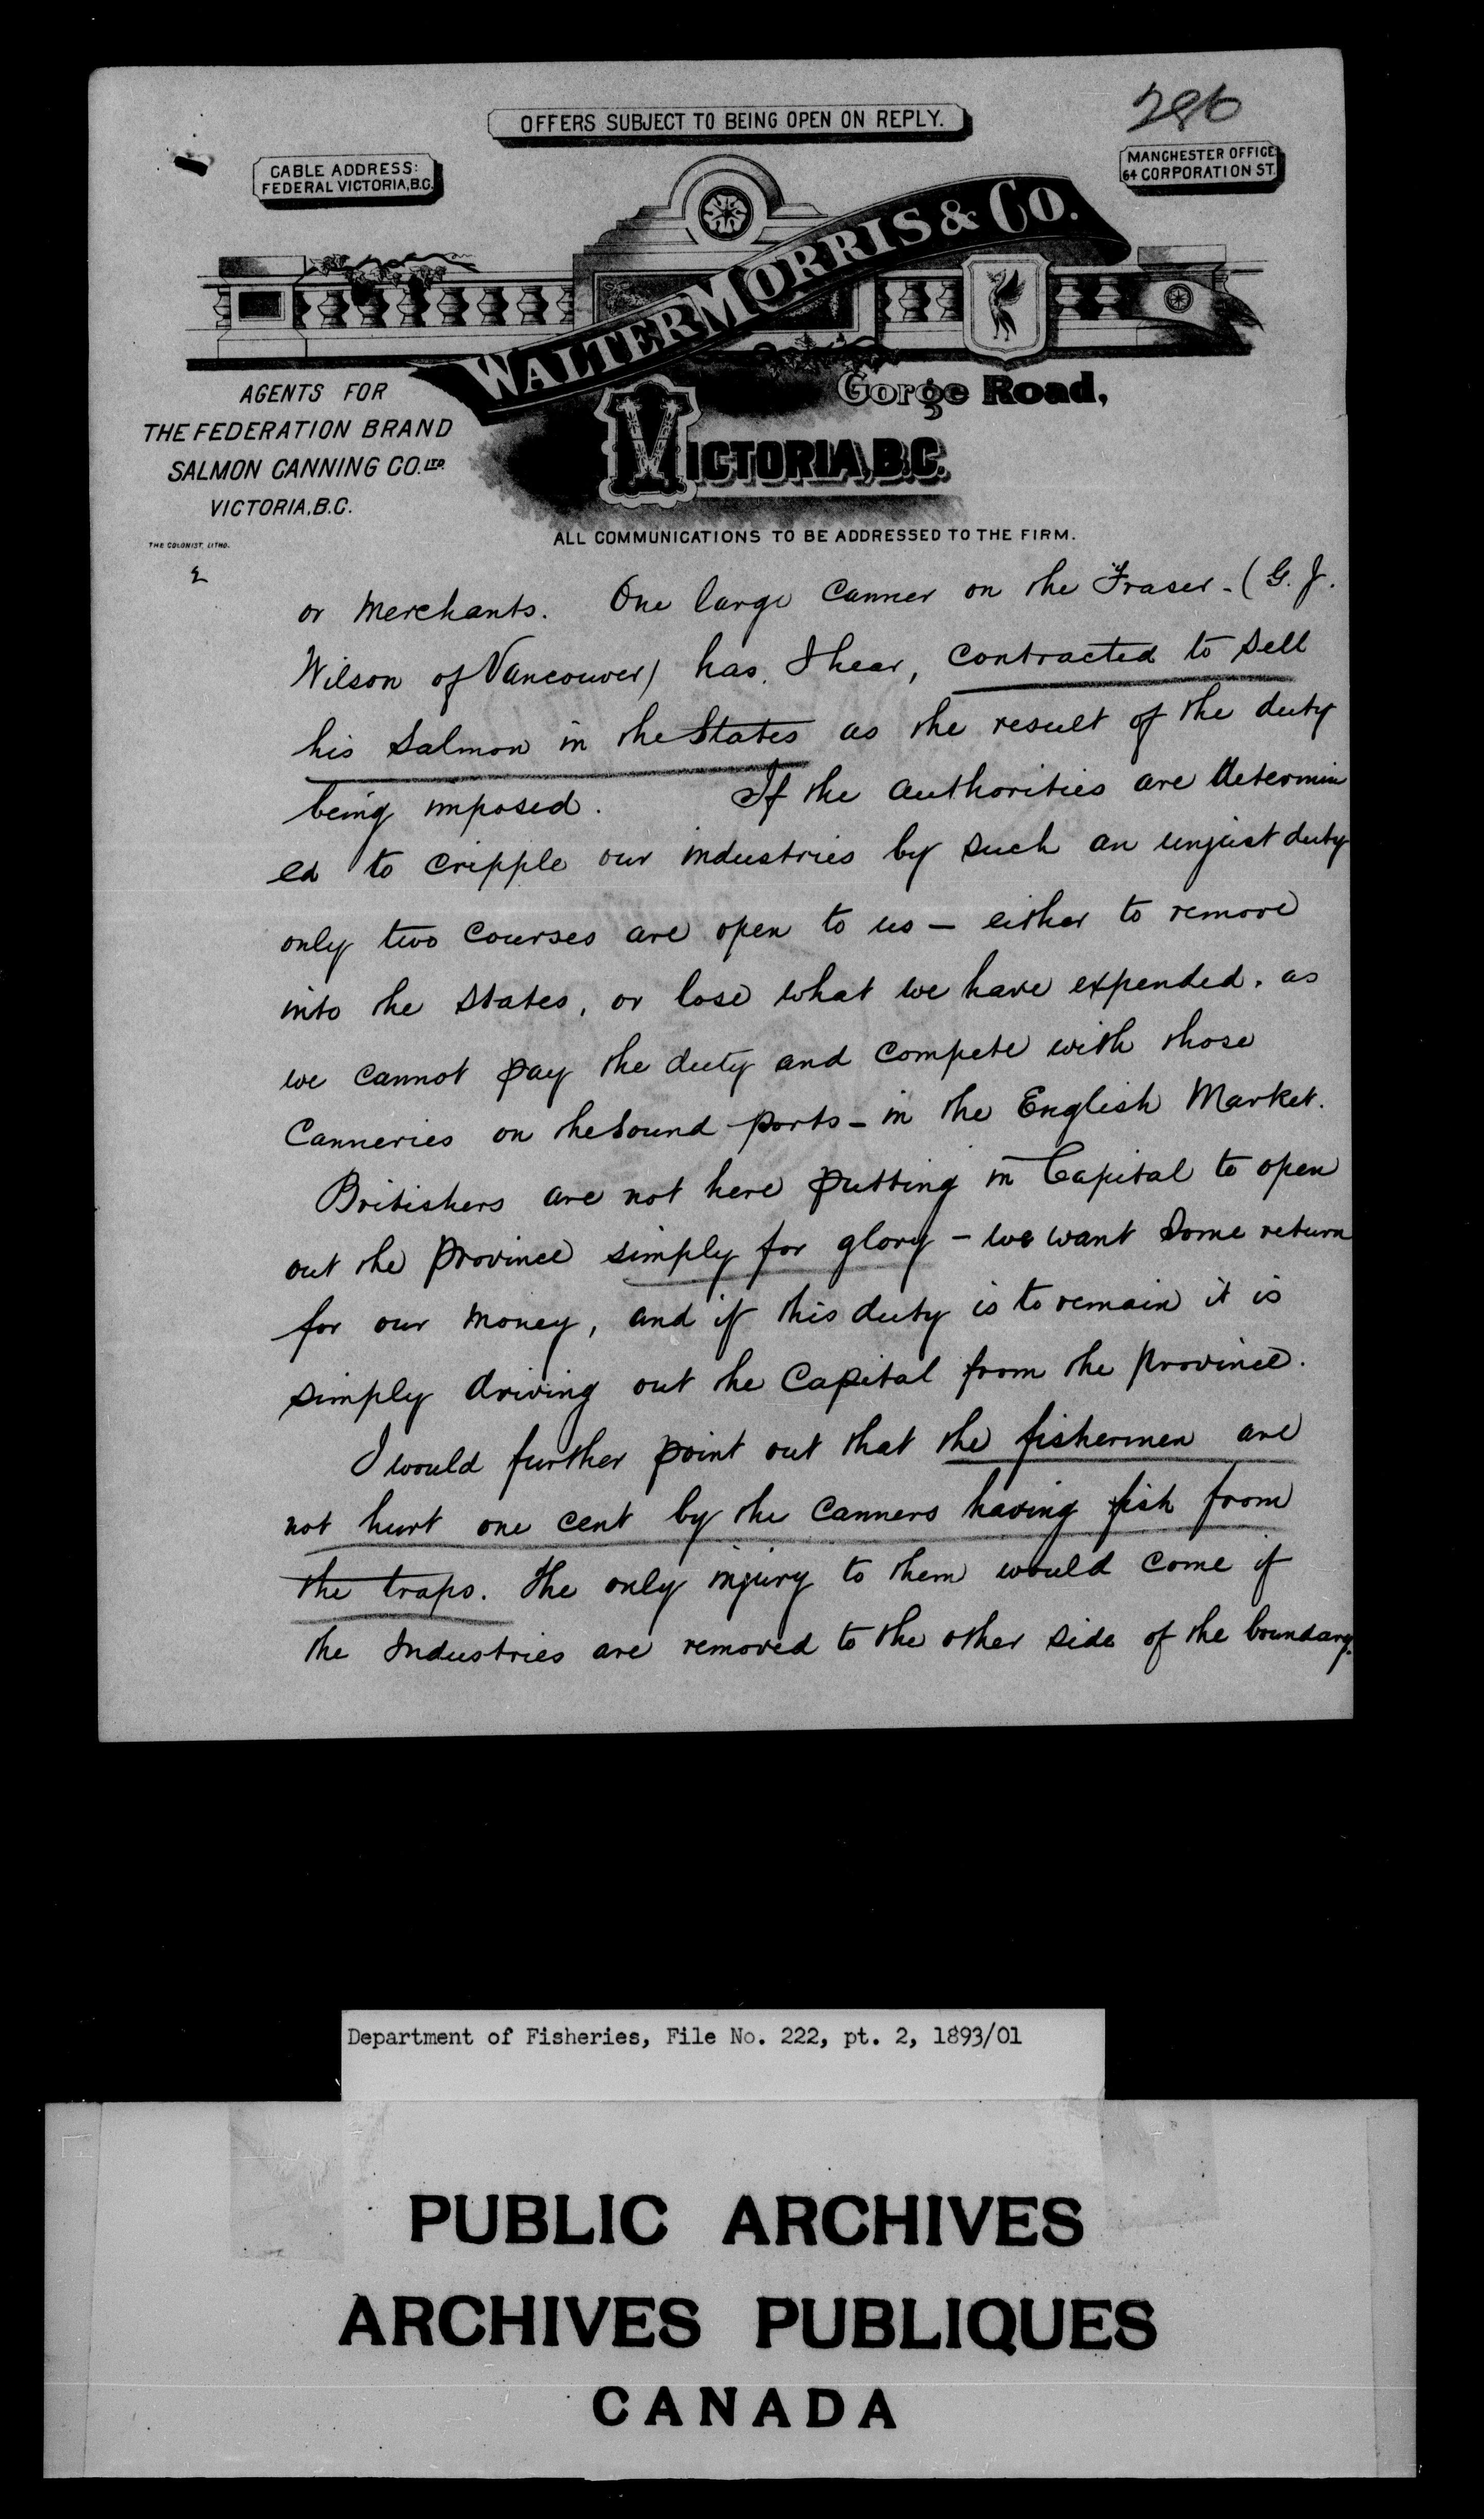 286
OFFERS SUBJECT TO BEING OPEN ON REPLY.
CABLE ADDRESS:
FEDERAL VICTORIA, B.C.
MANCHESTER OFFICE
64 CORPORATION ST.
WALTER MORRIS & CO.
AGENTS FOR
THE FEDERATION BRAND
SALMON CANNING CO. LTD.
VICTORIA, B.C.
Gorge Road,
VICTORIA, B.C.
THE COLONIST, LITHO.
ALL COMMUNICATIONS TO BE ADDRESSED TO THE FIRM.
2
or Merchants. One large Canner on the Fraser - (G. J.
Wilson of Vancouver) has, I hear, contracted to sell
his Salmon in the States as the result of the duty
being imposed. If the authorities are determin
ed to cripple our industries by such an unjust duty
only two courses are open to us — either to remove
into the States, or lose what we have expended, as
we cannot pay the duty and compete with those
Canneries on the Sound ports - in the English Market.
Britishers are not here putting in Capital to open
out the Province simply for glory - we want some return
for our money, and if this duty is to remain it is
simply driving out the Capital from the Province.
I would further point out that the fishermen are
not hurt one cent by the Canners having fish from
the traps. The only injury to them would come if
the Industries are removed to the other side of the boundary.
Department of Fisheries, File No. 222, pt. 2, 1893/01
PUBLIC ARCHIVES
ARCHIVES PUBLIQUES
CANADA